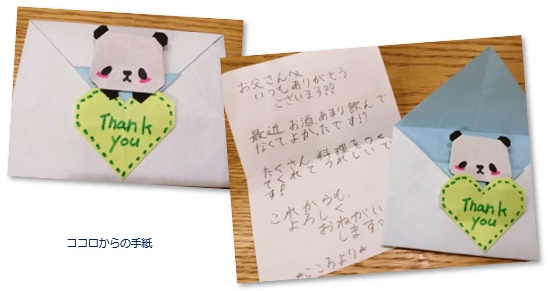 Thank
you
お父さんへ
いつもありがとう
ございます!!
最近 お酒あまり飲んで
なくてよかったです!!
たくさん 料理をつくっ
てくれてうれしいで
す!
これからも、
よろしく
おねがい
します
*こころより*
Thank
you
ココロからの手紙